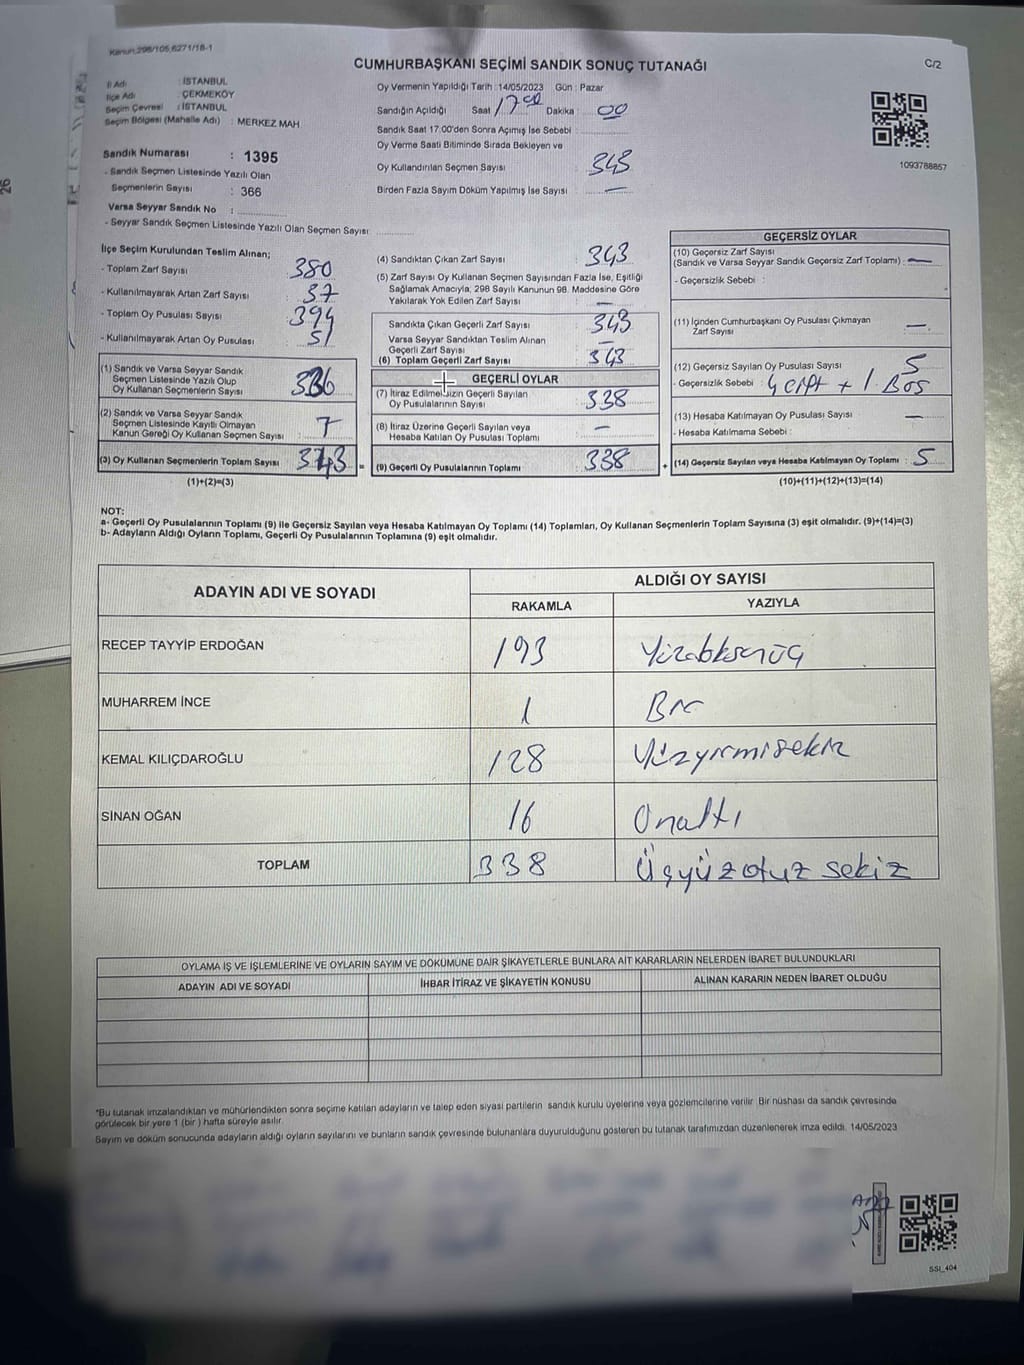 Kanun:298/105,6271/18-1
CUMHURBAŞKANI SEÇİMİ SANDIK SONUÇ TUTANAĞI
C/2
İl Adı : İSTANBUL
İlçe Adı : ÇEKMEKÖY
Seçim Çevresi : İSTANBUL
Seçim Bölgesi (Mahalle Adı) : MERKEZ MAH
Sandık Numarası : 1395
- Sandık Seçmen Listesinde Yazılı Olan
Seçmenlerin Sayısı : 366
Varsa Seyyar Sandık No :
- Seyyar Sandık Seçmen Listesinde Yazılı Olan Seçmen Sayısı
Oy Vermenin Yapıldığı Tarih :14/05/2023 Gün : Pazar
Sandığın Açıldığı Saat 17 00 Dakika : 00
Sandık Saat 17:00'den Sonra Açılmış İse Sebebi :
Oy Verme Saati Bitiminde Sırada Bekleyen ve
Oy Kullandırılan Seçmen Sayısı : 343
Birden Fazla Sayım Döküm Yapılmış İse Sayısı : —
1093788857
İlçe Seçim Kurulundan Teslim Alınan;
- Toplam Zarf Sayısı : 380
- Kullanılmayarak Artan Zarf Sayısı : 37
- Toplam Oy Pusulası Sayısı : 394
- Kullanılmayarak Artan Oy Pusulası : 51
(1) Sandık ve Varsa Seyyar Sandık
Seçmen Listesinde Yazılı Olup
Oy Kullanan Seçmenlerin Sayısı : 336
(2) Sandık ve Varsa Seyyar Sandık
Seçmen Listesinde Kayıtlı Olmayan
Kanun Gereği Oy Kullanan Seçmen Sayısı : 7
(3) Oy Kullanan Seçmenlerin Toplam Sayısı : 343
(1)+(2)=(3)
=
(4) Sandıktan Çıkan Zarf Sayısı : 343
(5) Zarf Sayısı Oy Kullanan Seçmen Sayısından Fazla İse, Eşitliği
Sağlamak Amacıyla, 298 Sayılı Kanunun 98. Maddesine Göre
Yakılarak Yok Edilen Zarf Sayısı : —
Sandıkta Çıkan Geçerli Zarf Sayısı : 343
Varsa Seyyar Sandıktan Teslim Alınan
Geçerli Zarf Sayısı : —
(6) Toplam Geçerli Zarf Sayısı : 343
GEÇERLİ OYLAR
(7) İtiraz Edilmeksizin Geçerli Sayılan
Oy Pusulalarının Sayısı : 338
(8) İtiraz Üzerine Geçerli Sayılan veya
Hesaba Katılan Oy Pusulası Toplamı : —
(9) Geçerli Oy Pusulalarının Toplamı : 338
+
GEÇERSİZ OYLAR
(10) Geçersiz Zarf Sayısı
(Sandık ve Varsa Seyyar Sandık Geçersiz Zarf Toplamı) : —
- Geçersizlik Sebebi :
(11) İçinden Cumhurbaşkanı Oy Pusulası Çıkmayan
Zarf Sayısı : —
(12) Geçersiz Sayılan Oy Pusulası Sayısı : 5
- Geçersizlik Sebebi : 4 çift + 1 Boş
(13) Hesaba Katılmayan Oy Pusulası Sayısı : —
- Hesaba Katılmama Sebebi :
(14) Geçersiz Sayılan veya Hesaba Katılmayan Oy Toplamı : 5
(10)+(11)+(12)+(13)=(14)
NOT:
a- Geçerli Oy Pusulalarının Toplamı (9) ile Geçersiz Sayılan veya Hesaba Katılmayan Oy Toplamı (14) Toplamları, Oy Kullanan Seçmenlerin Toplam Sayısına (3) eşit olmalıdır. (9)+(14)=(3)
b- Adayların Aldığı Oyların Toplamı, Geçerli Oy Pusulalarının Toplamına (9) eşit olmalıdır.
ADAYIN ADI VE SOYADI
ALDIĞI OY SAYISI
RAKAMLA YAZIYLA
RECEP TAYYİP ERDOĞAN 193
MUHARREM İNCE 1 Bir
KEMAL KILIÇDAROĞLU 128 Yüzyirmisekiz
SİNAN OĞAN 16 Onaltı
TOPLAM 338 Üçyüzotuz sekiz
OYLAMA İŞ VE İŞLEMLERİNE VE OYLARIN SAYIM VE DÖKÜMÜNE DAİR ŞİKAYETLERLE BUNLARA AİT KARARLARIN NELERDEN İBARET BULUNDUKLARI
ADAYIN ADI VE SOYADI İHBAR İTİRAZ VE ŞİKAYETİN KONUSU ALINAN KARARIN NEDEN İBARET OLDUĞU
*Bu tutanak imzalandıktan ve mühürlendikten sonra seçime katılan adayların ve talep eden siyasi partilerin sandık kurulu üyelerine veya gözlemcilerine verilir. Bir nüshası da sandık çevresinde
görülecek bir yere 1 (bir ) hafta süreyle asılır.
Sayım ve döküm sonucunda adayların aldığı oyların sayılarını ve bunların sandık çevresinde bulunanlara duyurulduğunu gösteren bu tutanak tarafımızdan düzenlenerek imza edildi. 14/05/2023
SSI_404